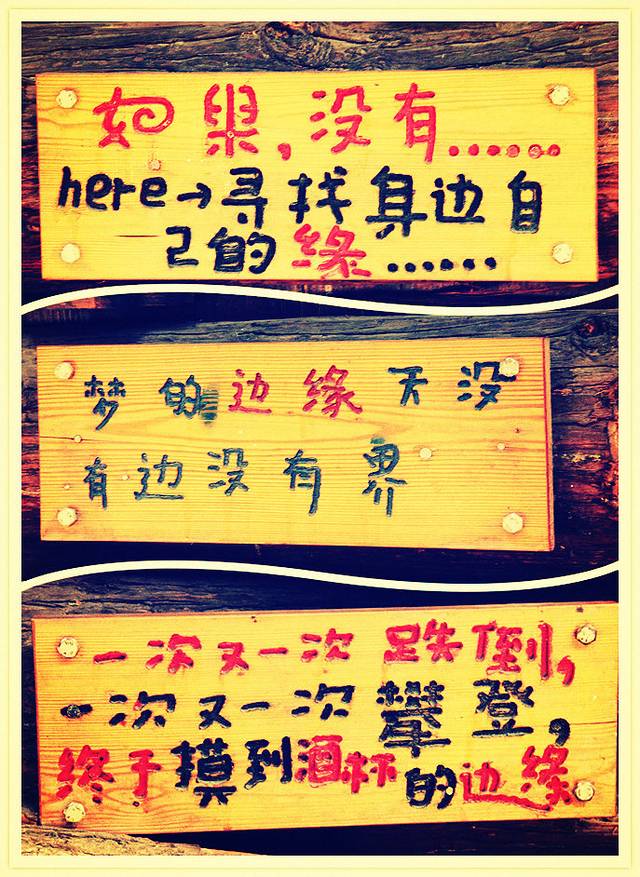 如果,没有......
here→寻找身边自
己的缘......
梦的边缘天没
有边没有界
一次又一次跌倒,
一次又一次攀登,
终于摸到酒杯的边缘